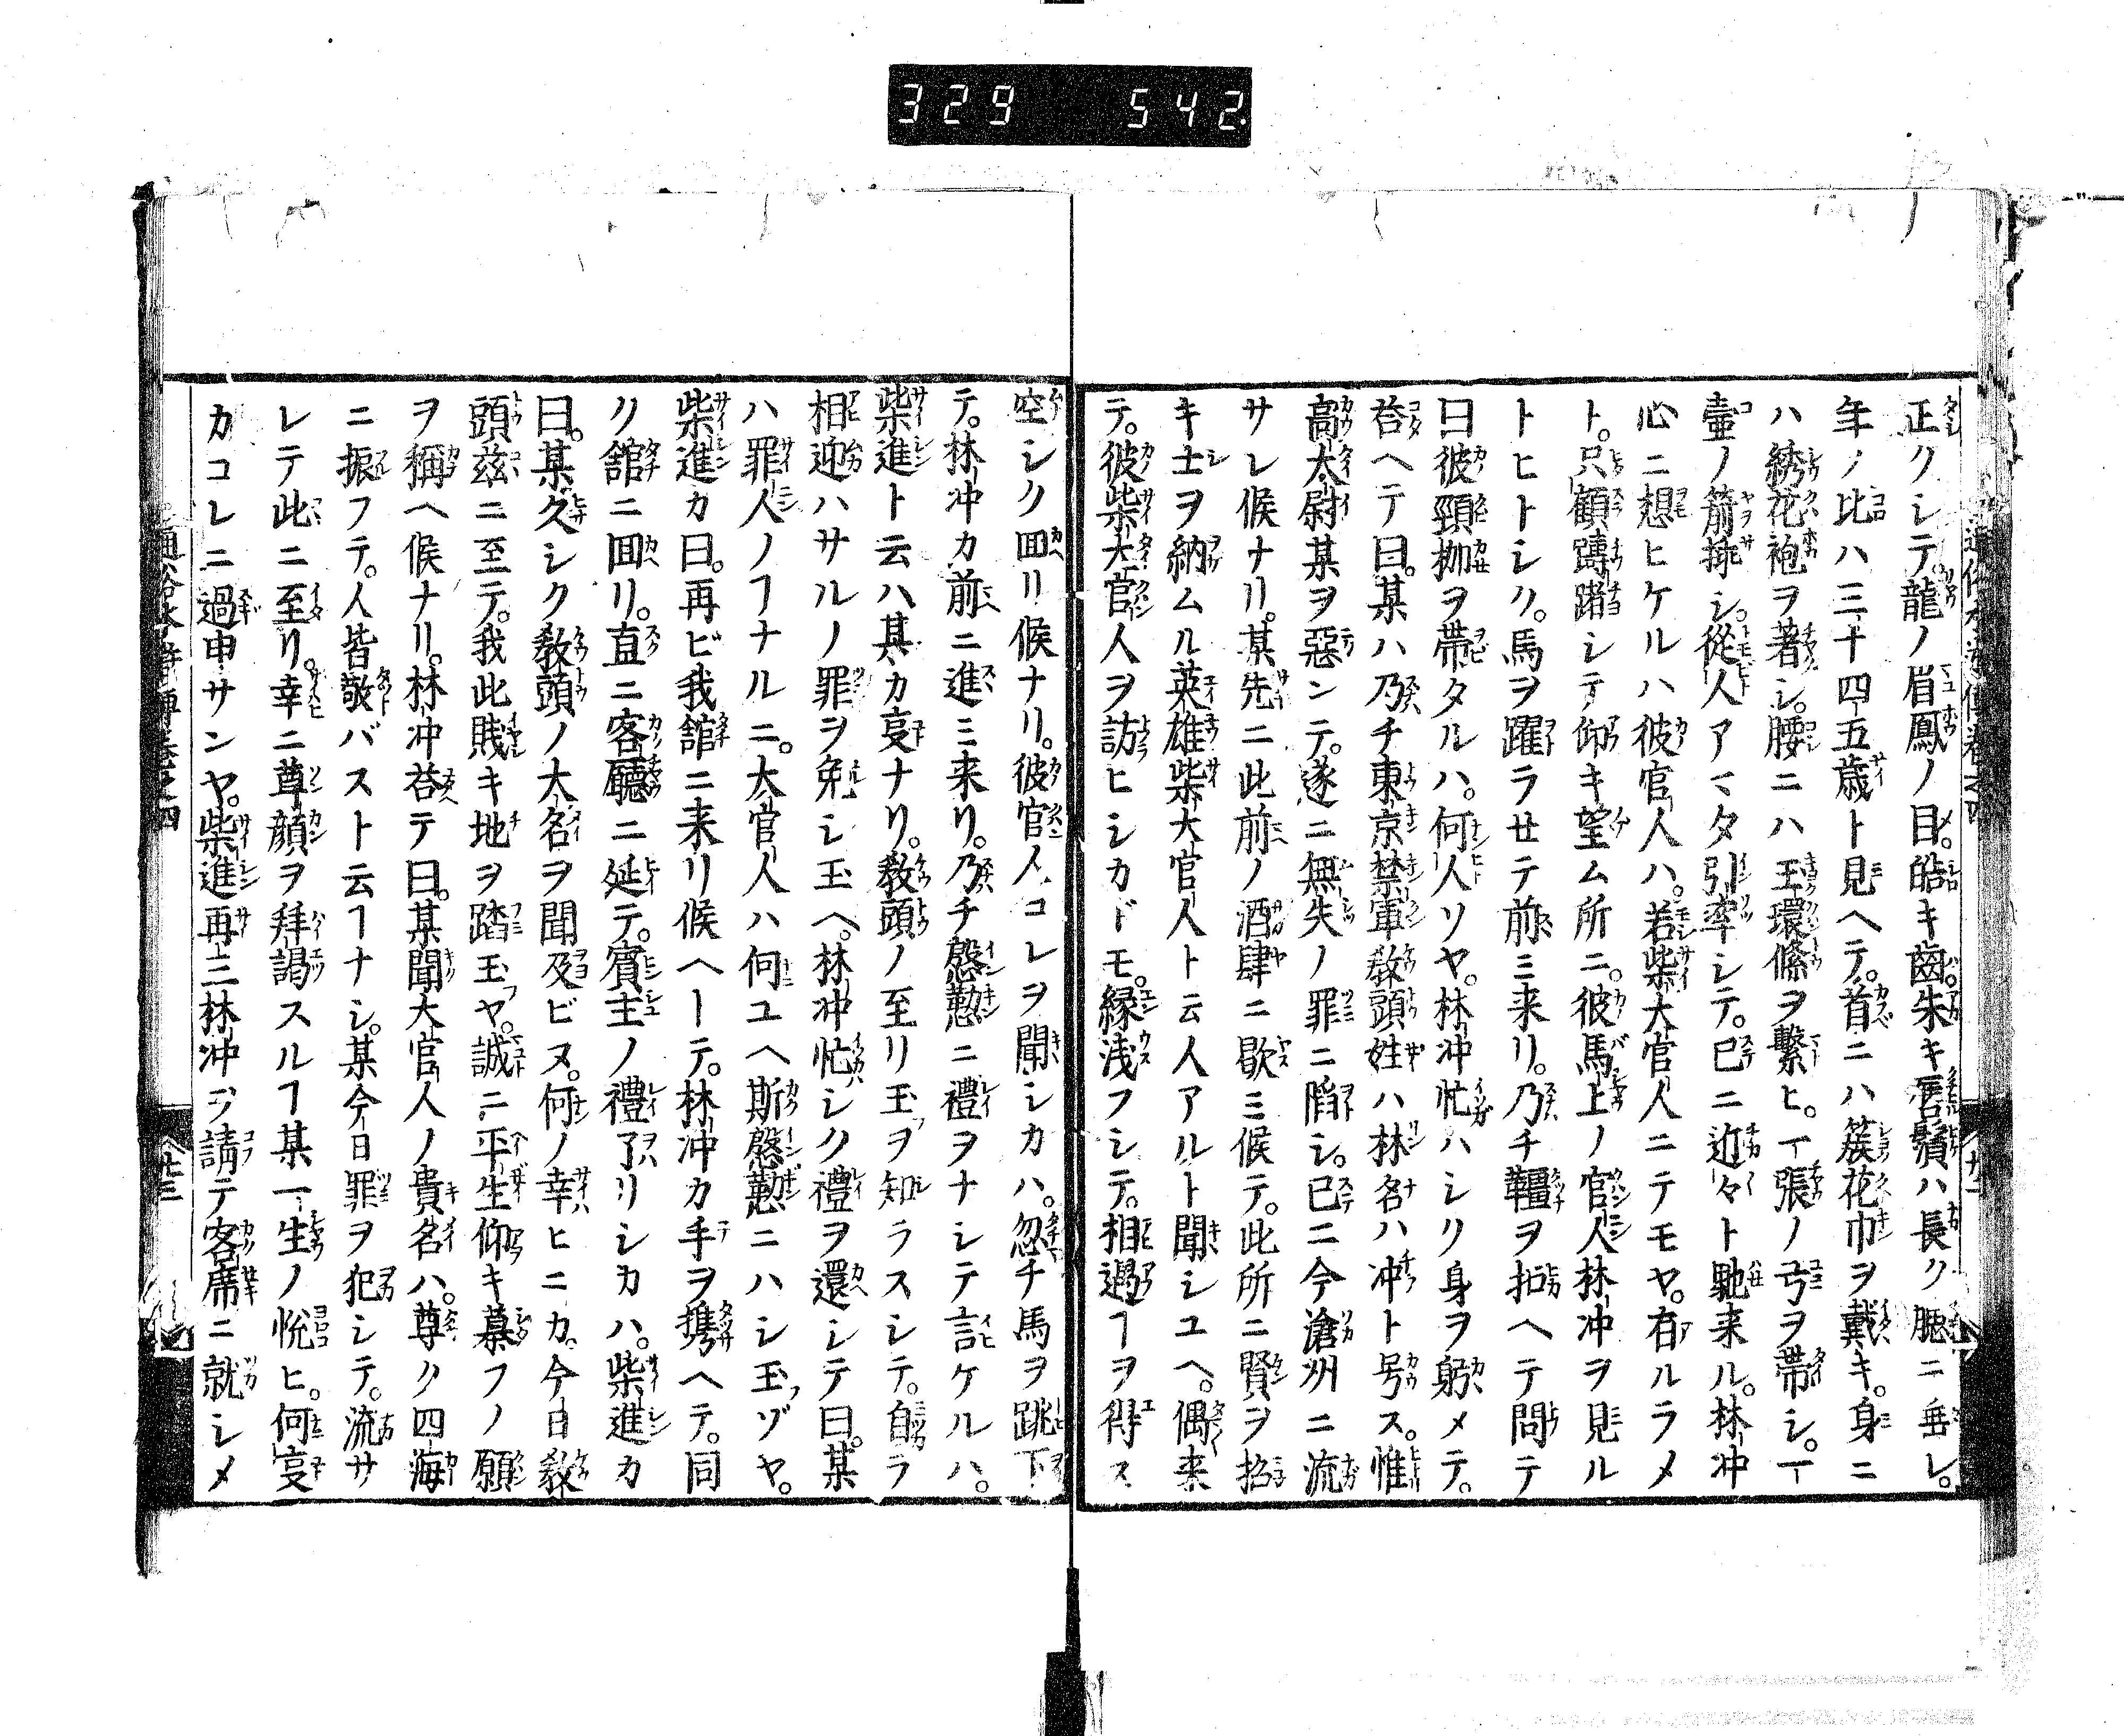 329 542.
正クシテ。龍ノ眉鳳ノ目。皓キ齒朱キ唇鬚ハ長ク腮ニ垂レ。
年ノ比ハ三十四五歳ト見ヘテ。首ニハ簇花巾ヲ戴キ。身ニ
ハ綉花袍ヲ著シ。腰ニハ玉環絛ヲ繫ヒ。一張ノ弓ヲ帶シ。一
壷ノ箭挿シ。從人アマタ引率シテ。已ニ近々ト馳来ル。林冲
心ニ想ヒケルハ彼官人ハ。若柴大官人ニテモヤ。有ルラメ
ト。只顧躊躇シテ仰キ望ム所ニ。彼馬上ノ官人林冲ヲ見ル
トヒトシク。馬ヲ躍ラせテ前ミ来リ。乃チ韁ヲ扣ヘテ問テ
曰彼頸枷ヲ帶タルハ。何人ソヤ。林冲忙ハシク身ヲ躬メテ。
荅ヘテ曰。某ハ乃チ東京禁軍敎頭姓ハ林名ハ冲ト号ス。惟
高大尉某ヲ惡ンテ。遂ニ無失ノ罪ニ陷シ。已ニ今滄州ニ流
サレ候ナリ。某先ニ此前ノ酒肆ニ歇ミ候テ。此所ニ賢ヲ招
キ士ヲ納ムル英雄柴大官人ト云人アルト聞シユヘ。偶来
テ。彼柴大官人ヲ訪ヒシカドモ。縁浅フシテ。相遇ヿヲ得ス
空シク囬リ候ナリ。彼官人コレヲ聞シカハ。忽チ馬ヲ跳下
テ。林冲カ前ニ進ミ来リ。乃チ慇懃ニ禮ヲナシテ言ケルハ。
柴進ト云ハ某カ叓ナリ。敎頭ノ至リ玉フヲ知ラスシテ。自ラ
相迎ハサルノ罪ヲ免シ玉ヘ。林冲忙シク禮ヲ還シテ曰。某
ハ罪人ノヿナルニ。大官人ハ何ユヘ斯慇懃ニハシ玉フゾヤ。
柴進カ曰。再ビ我舘ニ来リ候ヘーテ。林冲カ手ヲ携ヘテ。同
ク舘ニ囬リ。直ニ客廳ニ延テ。賓主ノ禮了リシカハ。柴進カ
曰。某久シク敎頭ノ大名ヲ聞及ビヌ。何ノ幸ヒニカ。今日敎
頭茲ニ至テ。我此賎キ地ヲ踏玉フヤ。誠ニ平生仰キ慕フノ願
ヲ稱ヘ候ナリ。林冲荅テ曰。某聞大官人ノ貴名ハ。尊ク四海
ニ振フテ。人皆敬バスト云ヿナシ。某今日罪ヲ犯シテ。流サ
レテ此ニ至リ。幸ニ尊顔ヲ拜謁スルヿ某一生ノ悦ヒ。何叓
カコレニ過申サンヤ。柴進再三林冲ヲ請テ客席ニ就シメ